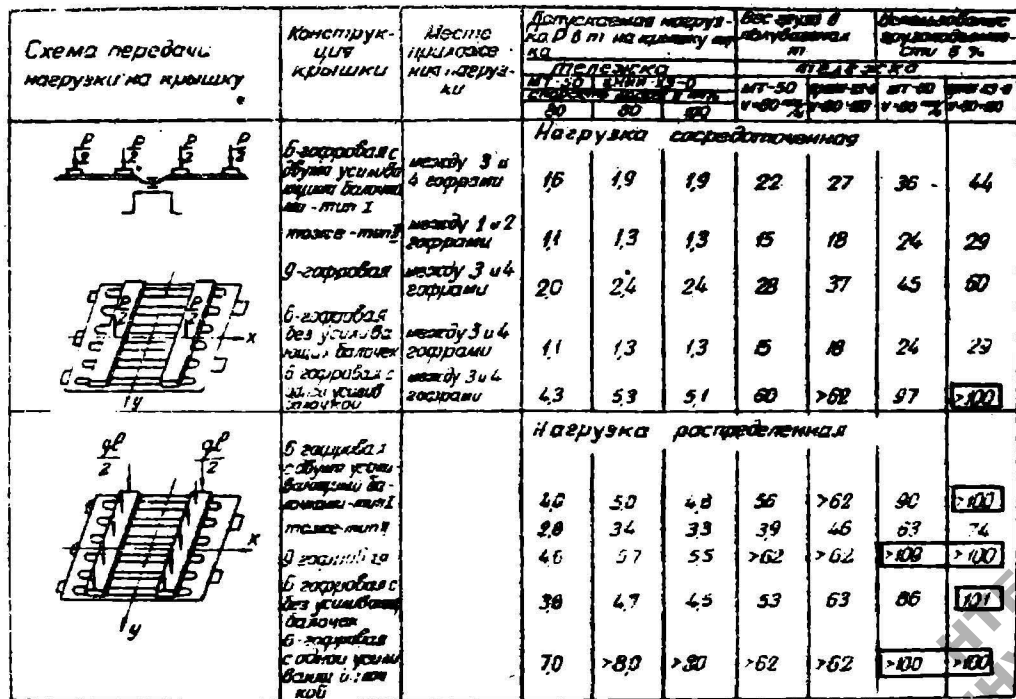 Схема передачи
нагрузки на крышку
Конструк-
ция
крышки
Место
приложе-
ния нагруз-
ки
Допускаемая нагруз-
ка Р в т на крышку
тележка
МТ-50
80 80 100
Вес груза в
полувагоне
т
Использование
грузоподъемно-
сти в %
тележка
МТ-50
Нагрузка сосредоточенная
6-гофровая с
двумя усилива
ющими балочка
ми - тип I
между 3 и
4 гофрами
1,6 1,9 1,9 22 27 36 44
тоже - тип II
между 1 и 2
гофрами
1,1 1,3 1,3 15 18 24 29
9-гофровая
между 3 и 4
гофрами
2,0 2,4 2,4 28 37 45 60
6-гофровая
без усилива
ющих балочек
между 3 и 4
гофрами
1,1 1,3 1,3 15 18 24 29
6 гофровая с
усилив
балочкой
между 3 и 4
гофрами
4,3 5,3 5,1 60 >62 97 >100
x
y
Нагрузка распределенная
ql
2
ql
2
x
y
6 гофровая
с двумя усили
вающими ба-
лочками-тип I
4,0 5,0 4,8 56 >62 90 >100
тоже-тип II
2,8 3,4 3,3 39 46 63 74
9 гофровая
4,6 5,7 5,5 >62 >62 >100 >100
6 гофровая с
без усиливающ
балочек
3,8 4,7 4,5 53 63 86 101
6-гофровая
с одной усили
вающ
кой
7,0 >8,0 >8,0 >62 >62 >100 >100